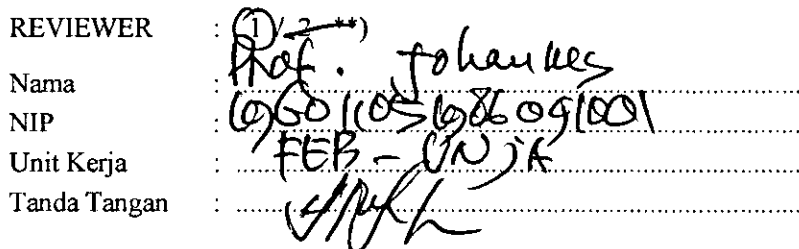 REVIEWER : 1 / 2 **)
Nama : Prof. Johannes
NIP : 196011051986091001
Unit Kerja : FEB - UNJA
Tanda Tangan :